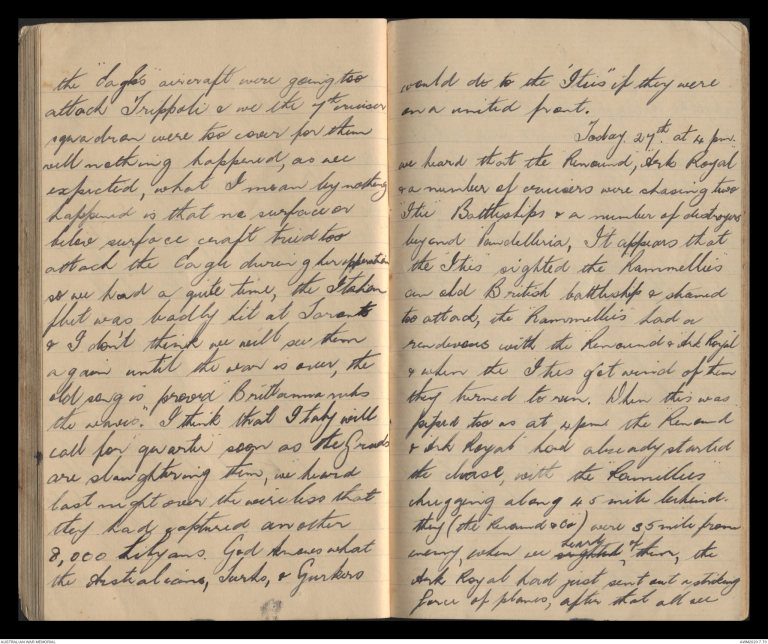 the "Eagles" aircraft were going too
attach Trippoli & we the 7th cruiser
squadron were too cover for them
well nothing happened, as we
expected, what I mean by nothing
happened is that no surface or
below surface craft tried too
attach the Eagle during her opperation
so we had a quite time, the Italian
fleet was badly hit at Taranto
& I don't think we will see them
again until the war is over, the
old song is proved "Brittanna ruls
the waves". I think that Italy will
call for quarter soon as the Greeks
are slaughtering them, we heard
last night over the wireless that
they had captured another
8,000 Libyans. God knows what
the Australians, Turks, & Gurkers
would do to the "Ities" if they were
on a united front.
Today. 27th. at 4 pm.
we heard that the Renound, Ark Royal
& a number of cruisers were chasing two
"Itie" Battleships & a number of destroyers
beyond Pandelleria, It appears that
the "Ities" sighted the Rammellies
an old British battleship & started
too attack, the "Rammellies" had a
rendevous with the Renound & Ark Royal
& when the Ities got wind of them
they turned to run. When this was
piped too us at 4 pm the "Renound
& Ark Royal" had already started
the chase, with the "Ramellies"
chugging along 45 mile behind.
they (the Renound & Co) were 35 mile from
enemy, when we heard of them, the
Ark Royal had just sent out a striking
force of planes, after that all we
AUSTRALIAN WAR MEMORIAL